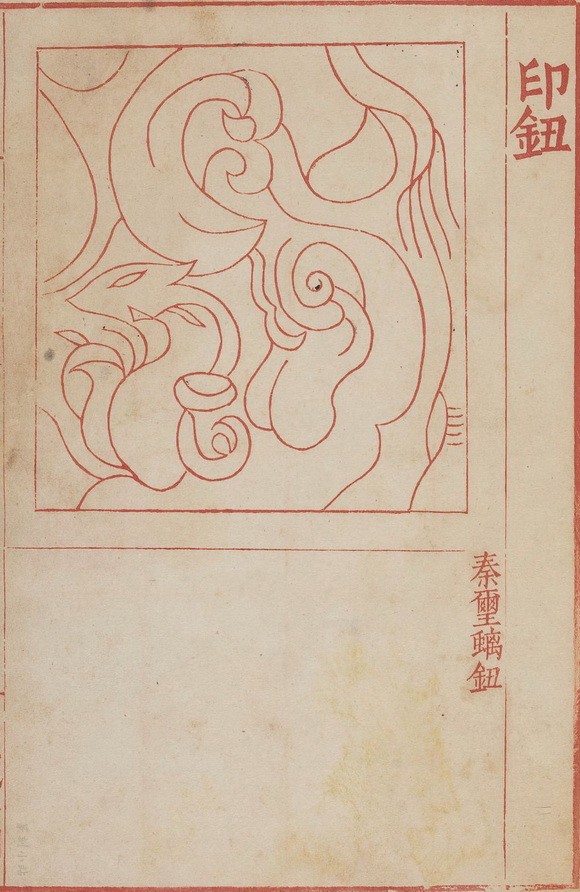 印鈕
秦璽螭鈕